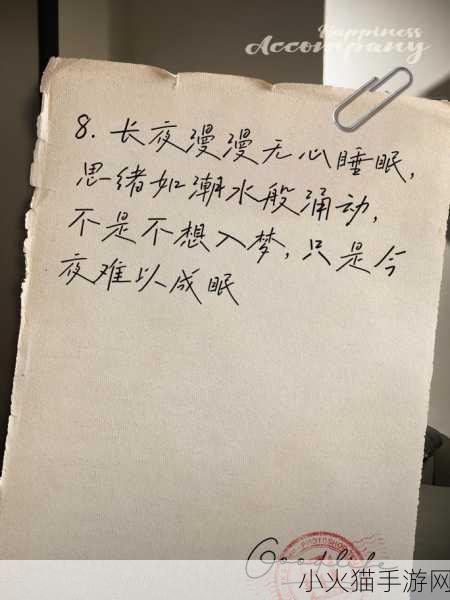 Happiness
Accompany
8. 长夜漫漫无心睡眠，
思绪如潮水般涌动，
不是不想入梦，只是今
夜难以成眠
Good life
小火猫手游网